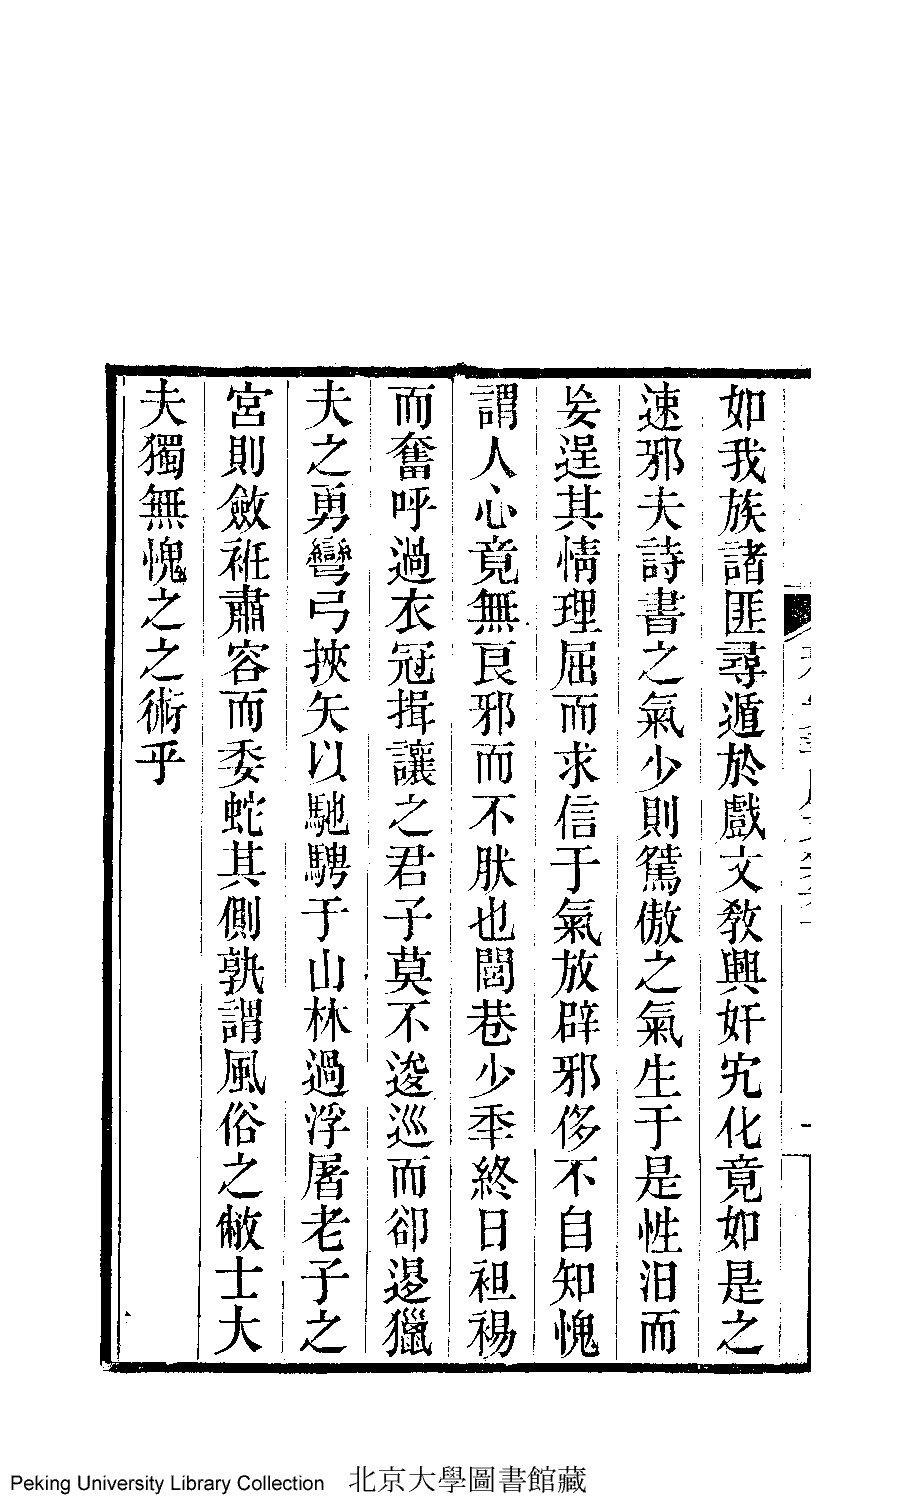 如我族諸匪尋遁於戲文敎興奸宄化竟如是之
速邪夫詩書之氣少則鷔傲之氣生于是性汨而
妄逞其情理屈而求信于氣放辟邪侈不自知愧
謂人心竟無良邪而不肰也閭巷少秊終日袒裼
而奮呼過衣冠揖讓之君子莫不逡巡而卻退獵
夫之勇彎弓挾矢以馳騁于山林過浮屠老子之
宮則斂袵肅容而委蛇其側孰謂風俗之敝士大
夫獨無愧之之術乎
Peking University Library Collection 北京大學圖書館藏